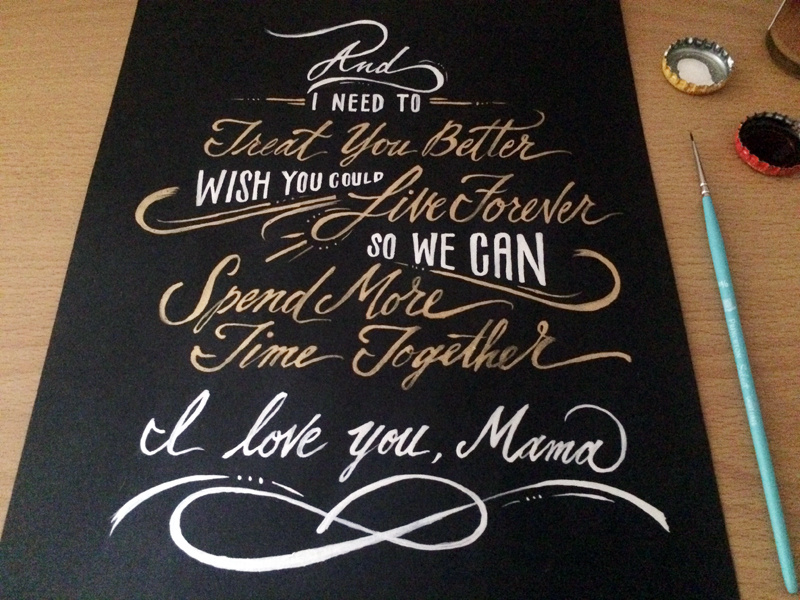 And
I NEED TO
Treat You Better
WISH YOU COULD Live Forever
SO WE CAN
Spend More
Time Together
I love you, Mama